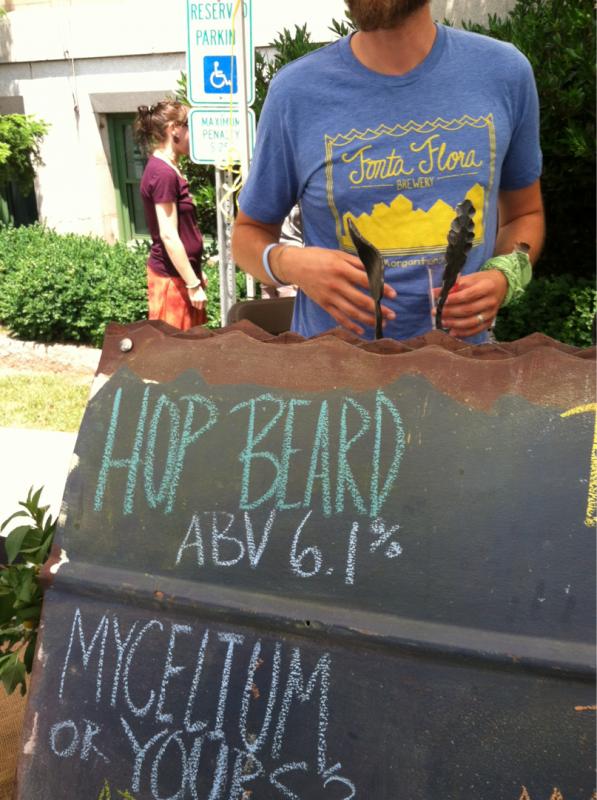 RESERVED
PARKING
MAXIMUM
PENALTY
Fonta Flora
BREWERY
HOP BEARD
ABV 6.1%
MYCELIUM
OR YOURS?